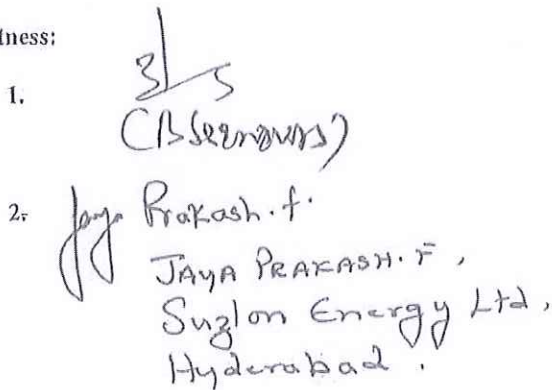 tness:
1.
2. Jaya Prakash.f.
JAYA PRAKASH.F,
Suzlon Energy Ltd,
Hyderabad.